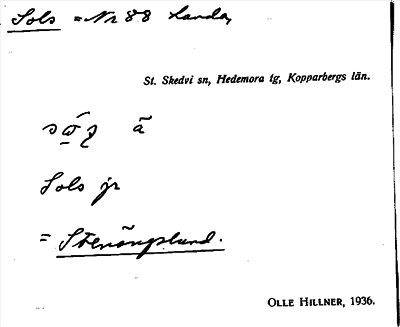 Sols = Nr 88 Landa,
St. Skedvi sn, Hedemora tg, Kopparbergs län.
Sols jr
= Stenängslund.
OLLE HILLNER, 1936.